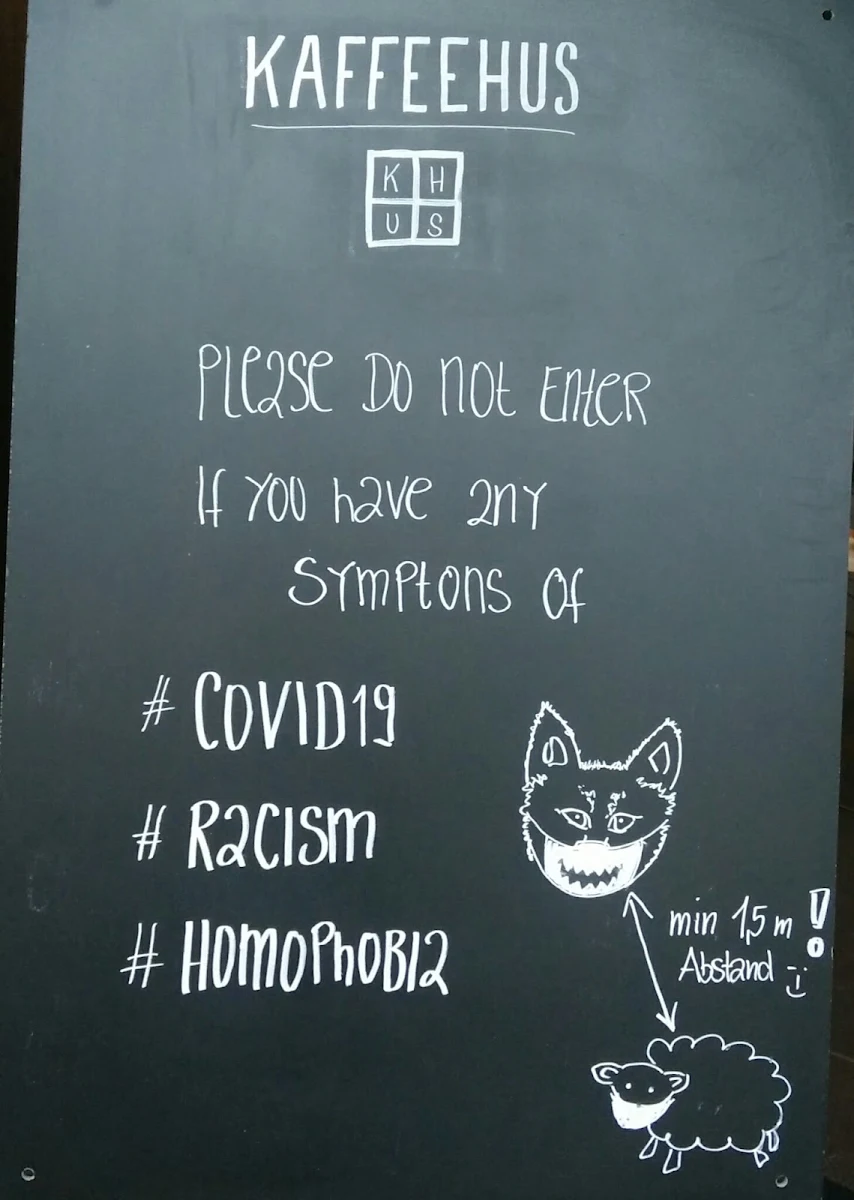 KAFFEEHUS
K H
U S
Please Do not Enter
If you have any
Symptons of
# COVID19
# Racism
# Homophobia
min 1,5 m !
Abstand :)